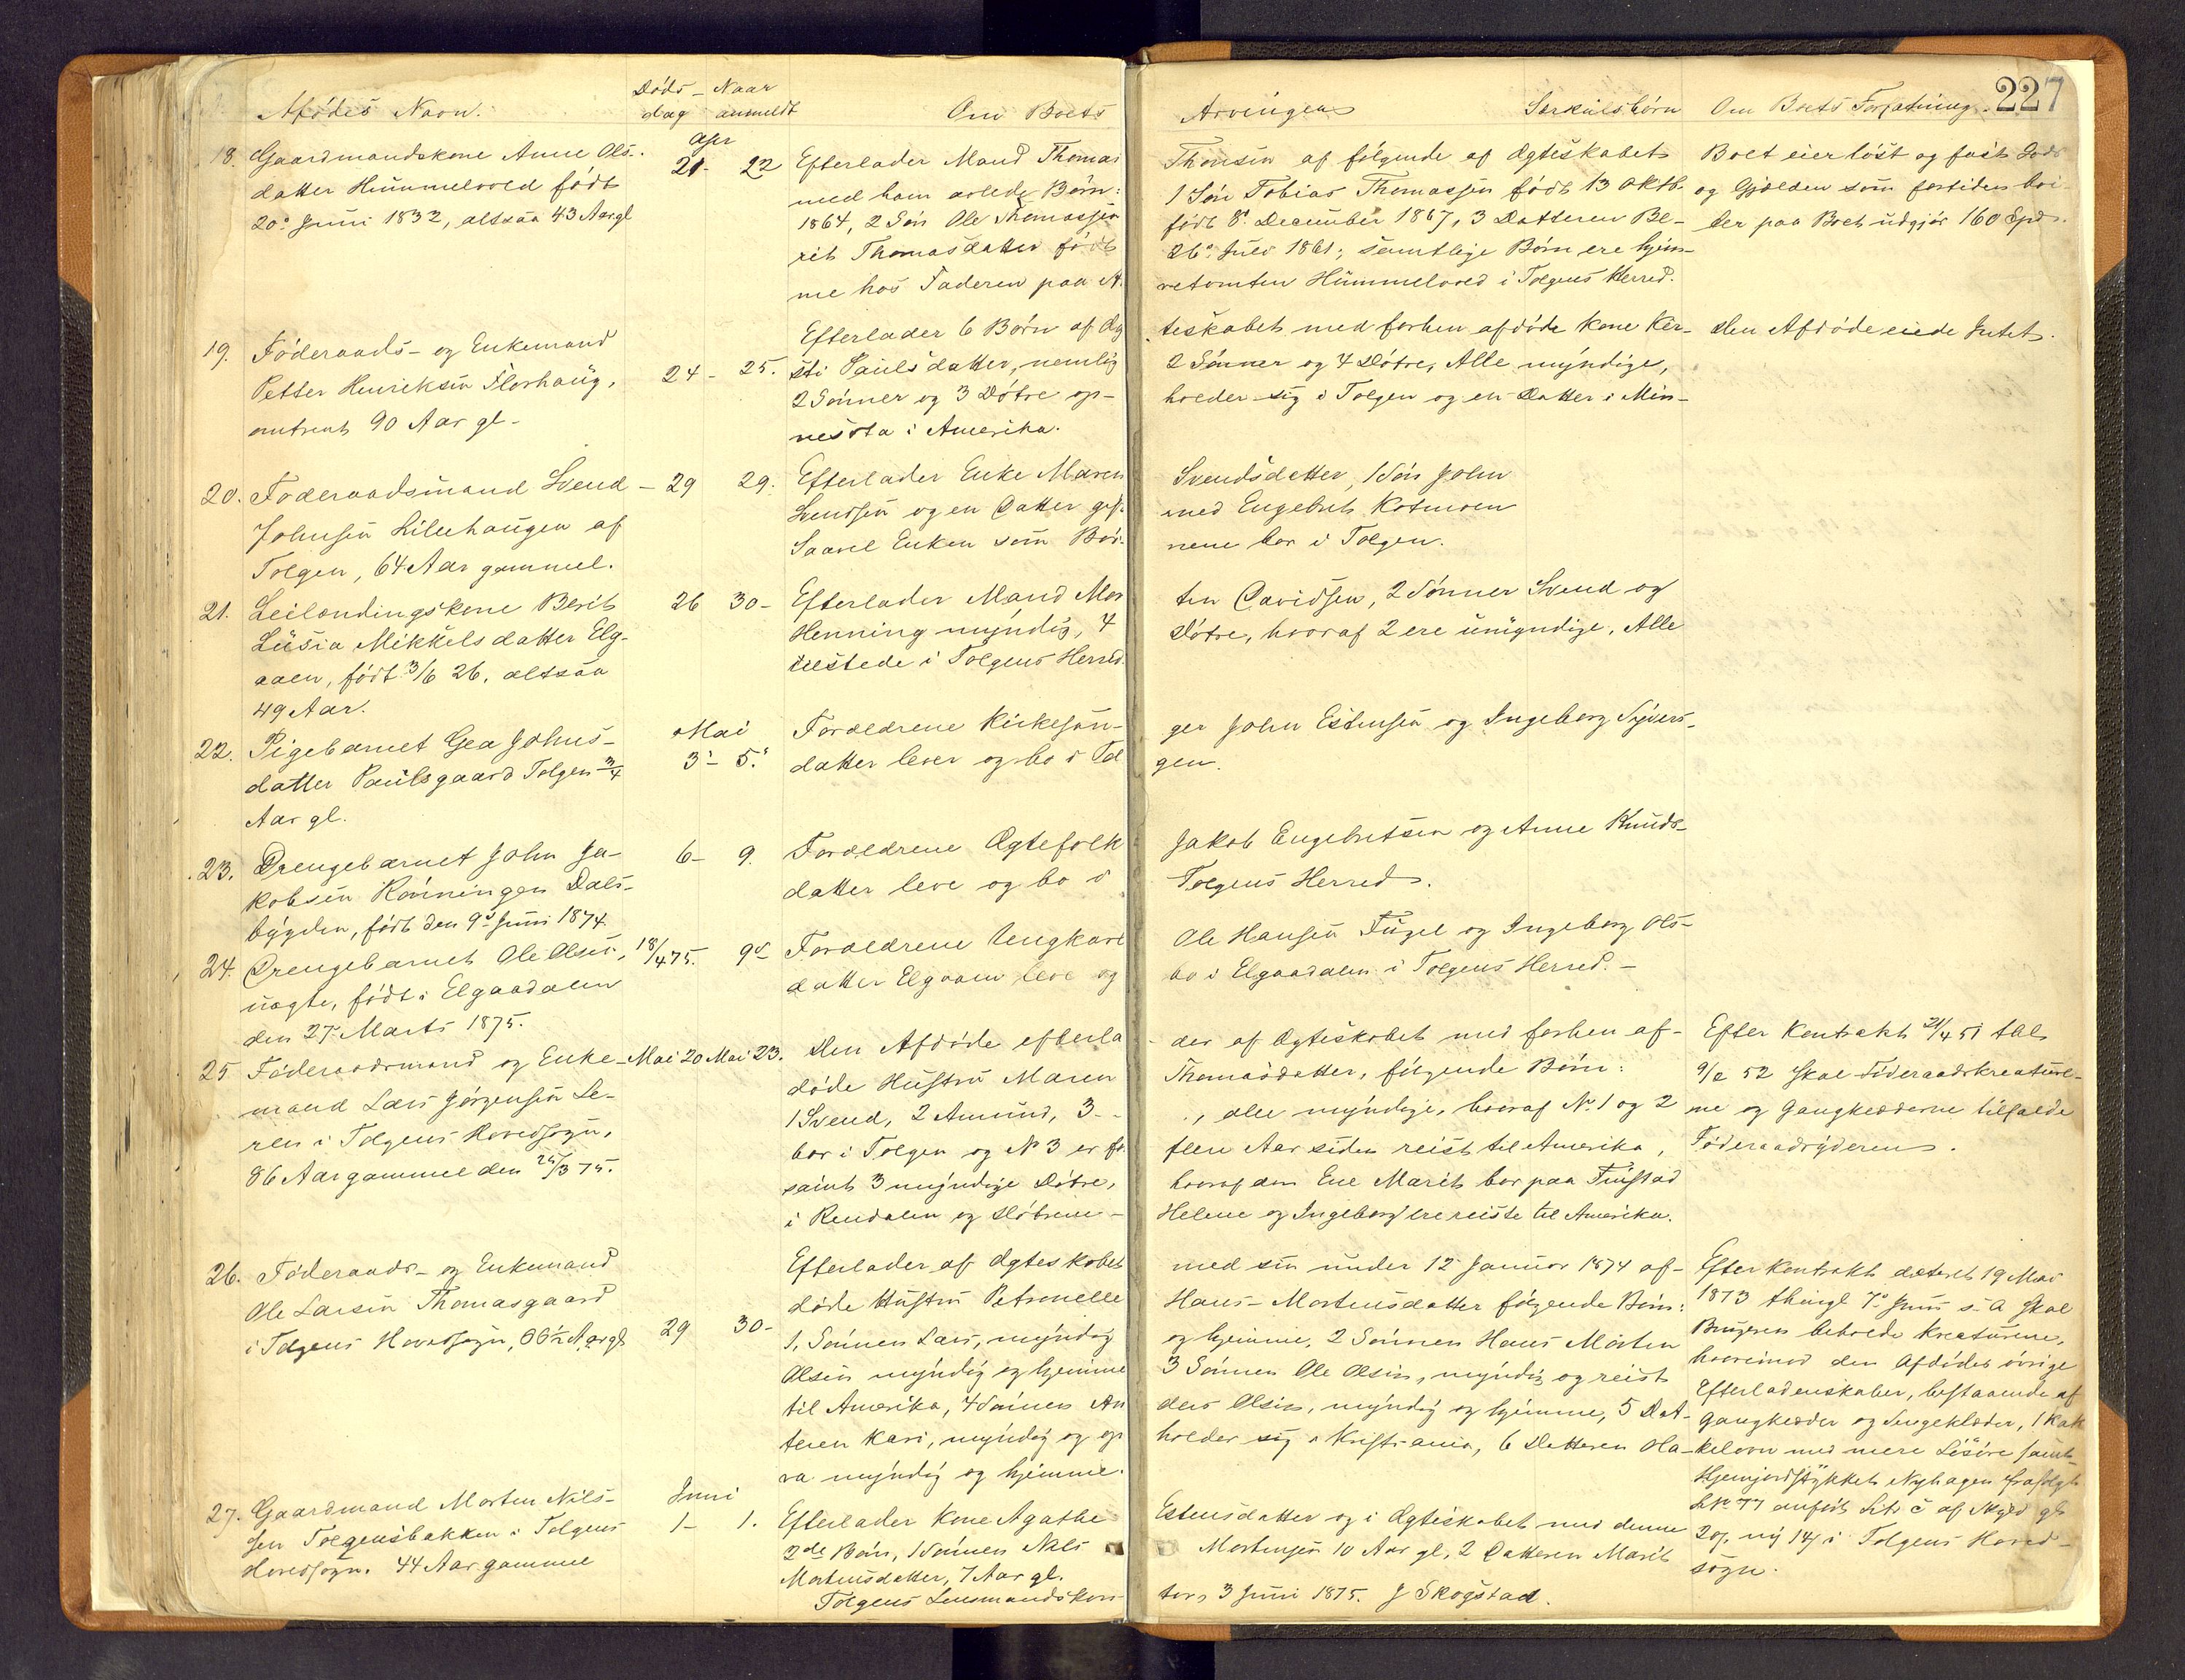 227
Afdødes Navn.
Døds- dag
Naar anmeldt
Om Boets
Arvingen
Særkulsbørn
Om Boets Forfatning.
18. Gaardmandskone Anne Ols-
datter Hummelvold født
20de Juni 1832, altsaa 43 Aar gl
Apr
21- 22
Efterlader Mand Thomas
med ham avlede Børn:
1864, 2 Søn Ole Thomassen
rit Thomasdatter født
me hos Faderen paa A
Thomsen af følgende af Ægteskabet
1 Søn Tobias Thomassen født 13 Oktb.
født 8de December 1867, 3 Datteren Be-
26de Juli 1861; samtlige Børn ere hjem-
vetomten Hummelvold i Tolgens Herred.
Boet eier løst og fast Gods
og Gjælden som fortiden hvi-
ler paa Boet udgjør 160 Spd.
19. Føderaads- og Enkemand
Petter Henriksen Florhaug,
omtrent 90 Aar gl-
24- 25.
Efterlader 6 Børn af Æg
sti Paulsdatter, nemlig
2 Sønner og 3 Døtre op-
nesota i Amerika.
teskabet med forhen afdøde Kone Kir-
2 Sønner og 4 Døtre, Alle myndige,
holder sig i Tolgen og en Datter i Min-
Den Afdøde eiede Intet.
20. Føderaadsmand Svend
Johnsen Lillehaugen af
Tolgen, 64 Aar gammel.
- 29 29.
Efterlader Enke Maren
Svendsen og en Datter gift
Saavel Enken som Bør-
Svendsdatter, 1 Søn John
med Engebret Kotmoen
nene bor i Tolgen.
21. Leilændingskone Berit
Lusia Mikkelsdatter Elg-
aaen, født 3/6 26, altsaa
49 Aar.
26 30-
Efterlader Mand Mor
Henning myndig, 4
tilstede i Tolgens Herred.
ten Davidsen, 2 Sønner Svend og
Døtre, hvoraf 2 ere umyndige, Alle
22. Pigebarnet Gea Johns-
datter Paulsgaard Tolgen 3/4
Aar gl.
Mai
3- 5.
Forældrene Kirkesan-
datter lever og bo i Tol
ger John Estensen og Ingeborg Syvers-
gen.
23. Drengebarnet John Ja-
kobsen Rønningen Dals-
bygden, født den 9de Juni 1874.
6- 9.
Forældrene Ægtefolk
datter leve og bo i
Jakob Engebretsen og Anne Knuds-
Tolgens Herred.
24. Drengebarnet Ole Olsen,
uægte, født i Elgaadalen
den 27de Marts 1875.
18/4 75. 9de
Forældrene Ungkarl
datter Elgaaen leve og
Ole Hansen Fugel og Ingeborg Ols-
bo i Elgaadalen i Tolgens Herred.-
25 Føderaadsmand og Enke-
mand Lars Jørgensen Le-
ren i Tolgens Hovedsogn,
86 Aar gammel den 25/3 75.
Mai 20 Mai 23.
Den Afdøde efterla
døde Hustru Maren
1 Svend, 2 Amund, 3-
bor i Tolgen og No 3 er for
samt 3 myndige Døtre,
i Rendalen og Døtrene-
der af Ægteskabet med forhen af-
Thomasdatter, følgende Børn:
., alle myndige, hvoraf No. 1 og 2
flere Aar siden reist til Amerika,
hvoraf den Ene Marit bor paa Finstad
Helene og Ingeborg ere reiste til Amerika.
Efter Kontrakt 21/4 51 thl
9/2 52 skal Føderaadskreature-
ne og Gangklæderne tilfalde
Føderaadsyderen.
26. Føderaads- og Enkemand
Ole Larsen Thomasgaard
i Tolgens Hovedsogn, 66½ Aar gl
29 30-
Efterlader af Ægteskabet
døde Hustru Petronelle
1, Sønnen Lars, myndig
Olsen myndig og hjemme
til Amerika, 4 Sønnen An
teren Kari, myndig og op
va myndig og hjemme.
med sin under 12 Januar 1874 af-
Hans-Mortensdatter følgende Børn:
og hjemme, 2 Sønnen Hans Morten
3 Sønnen Ole Olsen, myndig og reist
ders Olsen, myndig og hjemme, 5 Dat-
holder sig i Kristiania, 6 Datteren Ha-
Efter Kontrakt dateret 19 Mai
1873 thingl 7de Juni s. A skal
Brugeren beholde Kreaturene,
hvorimod den Afdødes øvrige
Efterladenskaber, bestaaende af
Gangklæder og Sengeklæder, 1 Kak
kelovn med mere Løsøre samt
Hjemjordstykket Nyhagen frasolgt
LNo 77 anført Litr c af Skyld gl
2 og ny 14 i Tolgens Hoved-
sogn.
27. Gaardmand Morten Nils-
sen Tolgensbakken i Tolgens
Hovedsogn. 44 Aar gammel
Juni
1- 1.
Efterlader Kone Agathe
2de Børn, 1 Sønnen Nils
Mortensdatter, 7 Aar gl.
Tolgens Lensmandskon
Estensdatter og i Ægteskabet med denne
Mortensen 10 Aar gl, 2 Datteren Marit
tor, 3 Juni 1875. J Skogstad.